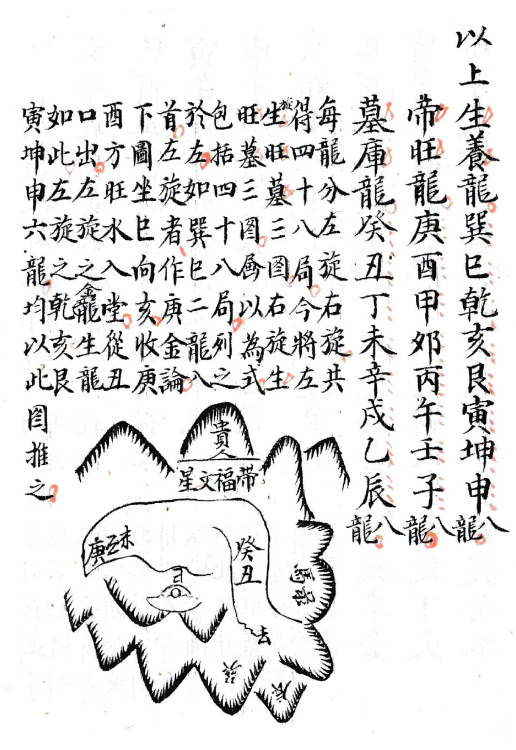 以上生養龍巽巳乾亥艮寅坤申八龍
帝旺龍庚酉甲夘丙午壬子八龍
墓庫龍癸丑丁未辛戌乙辰八龍
每龍分左旋右旋共
得四十八局今將左
生旺墓三图右旋生
旺墓三图畧以為式
包括四十八局列之
於左如巽巳二龍入
首左旋者作庚金論
下圖坐巳向亥收庚
酉方旺水入堂從丑
口出左旋之金龍生龍
如此左旋之乾亥艮
寅坤申六龍均以此图推之
貴人
帶福文星
庚
未
癸丑
馬
去